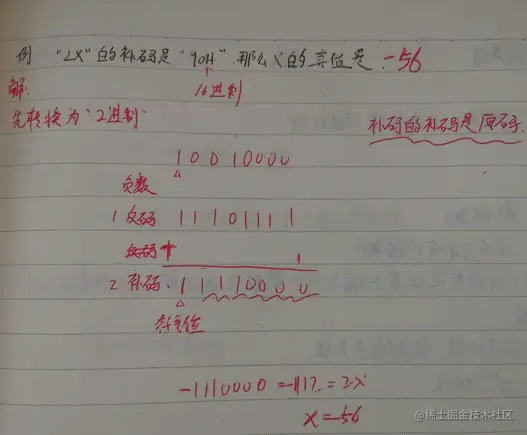 例 "2X"的补码是"90H"那么X的真值是 -56
解: 16进制
先转换为"2进制"
补码的补码是原码
10010000
负数
1 反码 11101111
反码+ 1
2 补码: 11110000
符号位
-1110000 = -112 = 2X
X = -56
@稀土掘金技术社区